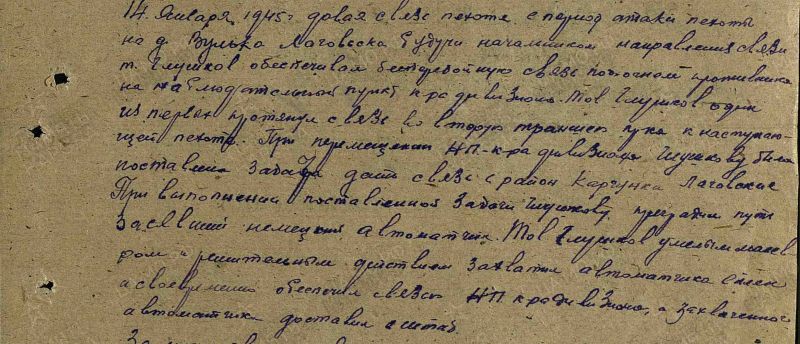 14. Января 1945г давая связь пехоте в период атаки пехоты
на д. Вулька Лаговска будучи начальником направления связи
т. Глушков обеспечивал бесперебойную связь противника
на наблюдательный пункт к-ра дивизиона. Тов Глушков один
из первых протянул связь во вторую траншею пр-ка к наступаю-
щей пехоте. При перемещении НП к-ра дивизиона Глушкову была
поставлена задача дать связь в район Лаговские
При выполнении поставленной задачи Глушкову преградил путь
засевший немецкий автоматчик. Тов Глушков умелым манев-
ром и решительным действием захватил автоматчика в плен
и своевременно обеспечил связью НП к-ра дивизиона, а захваченного
автоматчика доставил в штаб.